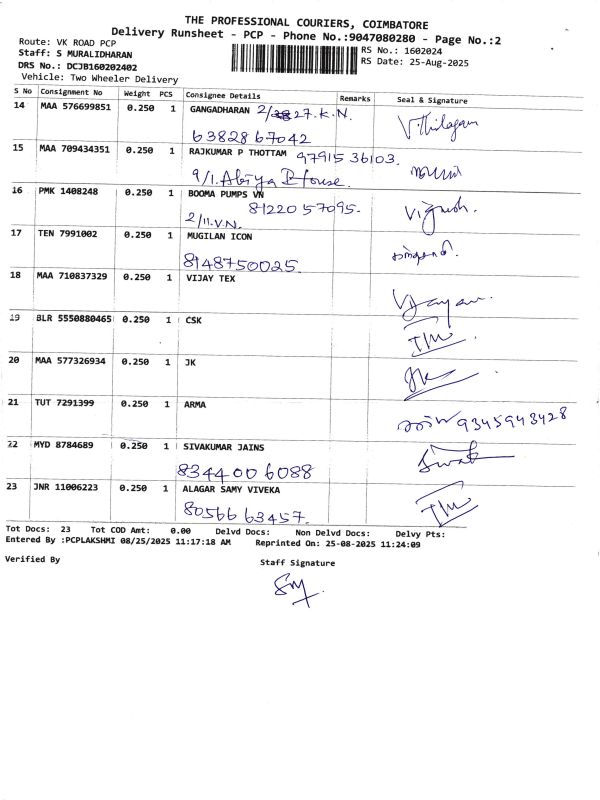 THE PROFESSIONAL COURIERS, COIMBATORE
Delivery Runsheet - PCP - Phone No.:9047080280 - Page No.:2
Route: VK ROAD PCP
Staff: S MURALIDHARAN
DRS No.: DCJB160202402
Vehicle: Two Wheeler Delivery
RS No.: 1602024
RS Date: 25-Aug-2025
S No Consignment No Weight PCS Consignee Details Remarks Seal & Signature
14 MAA 576699851 0.250 1 GANGADHARAN 2/ 27.K.N. V.Thilagam
6382867042
15 MAA 709434351 0.250 1 RAJKUMAR P THOTTAM 97915 36103.
9/1. Abiya House.
16 PMK 1408248 0.250 1 BOOMA PUMPS VN
81220 57095. Vignesh.
2/11.V.N.
17 TEN 7991002 0.250 1 MUGILAN ICON
8148750025.
18 MAA 710837329 0.250 1 VIJAY TEX
Vijayan.
19 BLR 5550880465 0.250 1 CSK
20 MAA 577326934 0.250 1 JK
JK
21 TUT 7291399 0.250 1 ARMA
9345943428
22 MYD 8784689 0.250 1 SIVAKUMAR JAINS
8344006088
23 JNR 11006223 0.250 1 ALAGAR SAMY VIVEKA
80566 63457.
Tot Docs: 23 Tot COD Amt: 0.00 Delvd Docs: Non Delvd Docs: Delvy Pts:
Entered By :PCPLAKSHMI 08/25/2025 11:17:18 AM Reprinted On: 25-08-2025 11:24:09
Verified By
Staff Signature